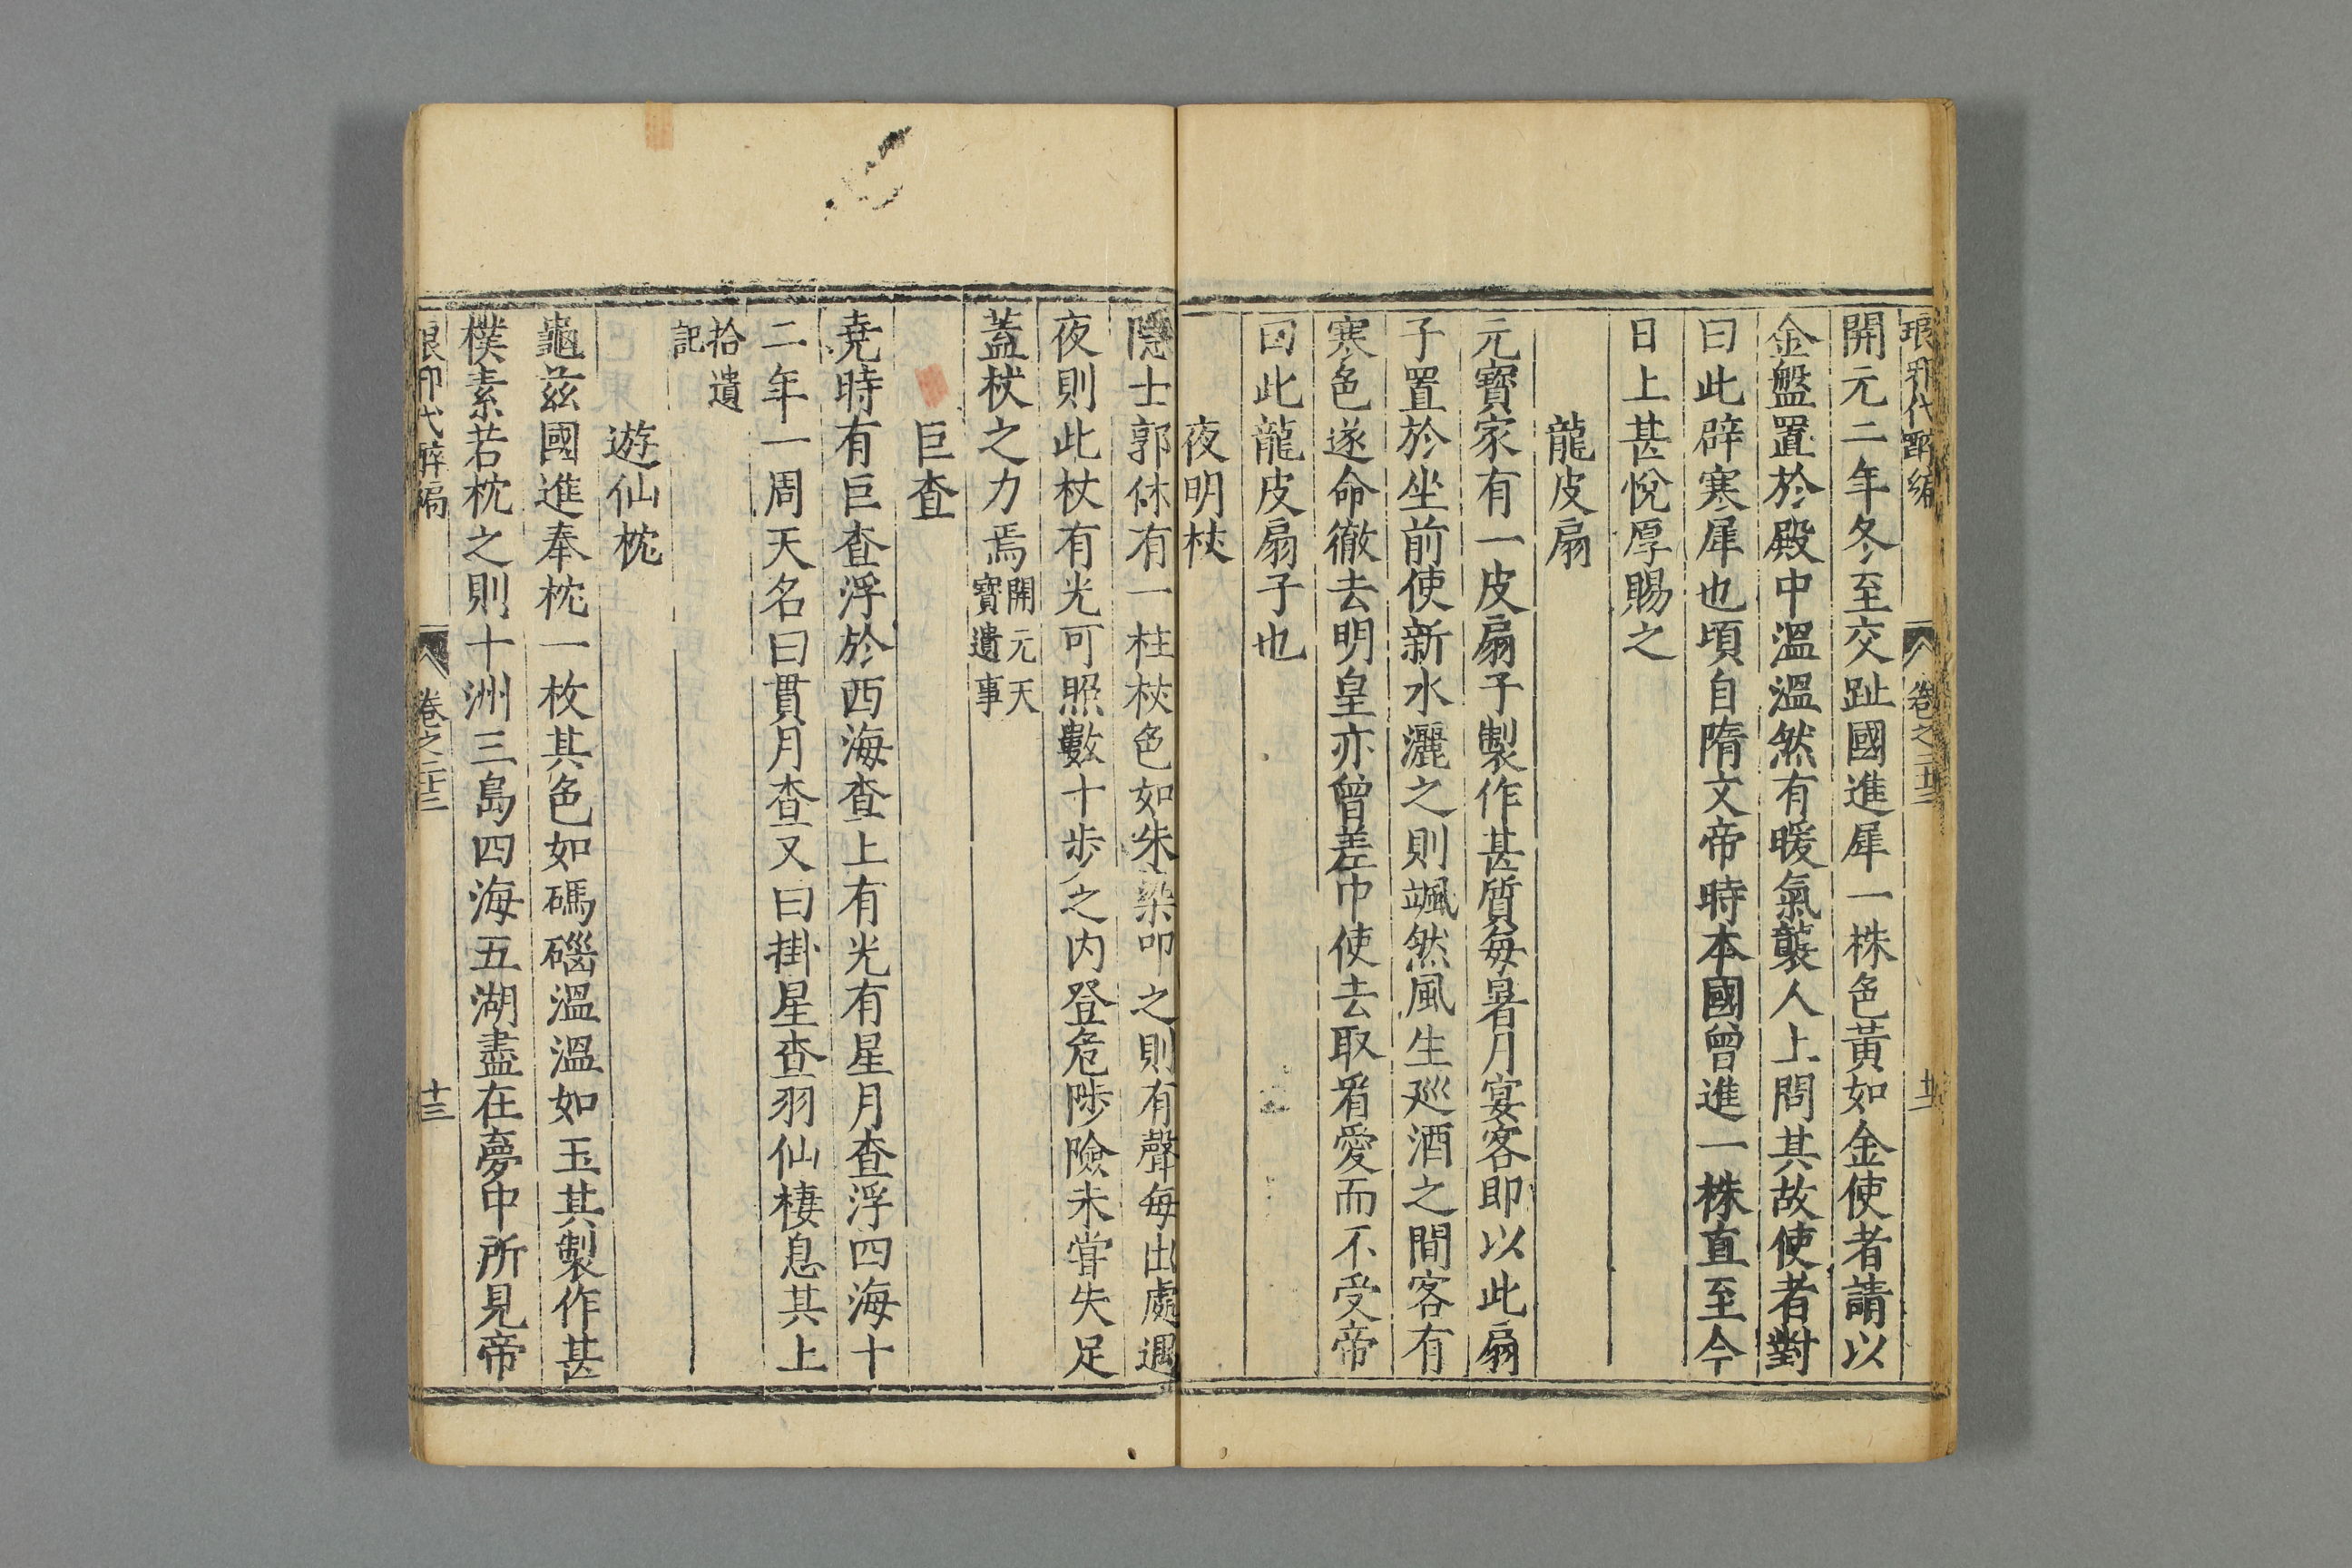 琅邪代醉編 卷之三十三
開元二年冬至交趾國進犀一株色黃如金使者請以
金盤置於殿中溫溫然有暖氣襲人上問其故使者對
曰此辟寒犀也頃自隋文帝時本國曾進一株直至今
日上甚悅厚賜之
龍皮扇
元寶家有一皮扇子製作甚質每暑月宴客即以此扇
子置於坐前使新水灑之則颯然風生廵酒之間客有
寒色遂命徹去明皇亦曾差巾使去取看愛而不受帝
曰此龍皮扇子也
夜明杖
隱士郭休有一柱杖色如朱染叩之則有聲每出處遇
夜則此杖有光可照數十步之內登危陟險未嘗失足
蓋杖之力焉開元天
寶遺事
巨查
堯時有巨查浮於西海查上有光有星月查浮四海十
二年一周天名曰貫月查又曰掛星查羽仙棲息其上
拾遺
記
遊仙枕
龜茲國進奉枕一枚其色如碼碯溫溫如玉其製作甚
樸素若枕之則十洲三島四海五湖盡在夢中所見帝
琅邪代醉編 卷之三十三 十三